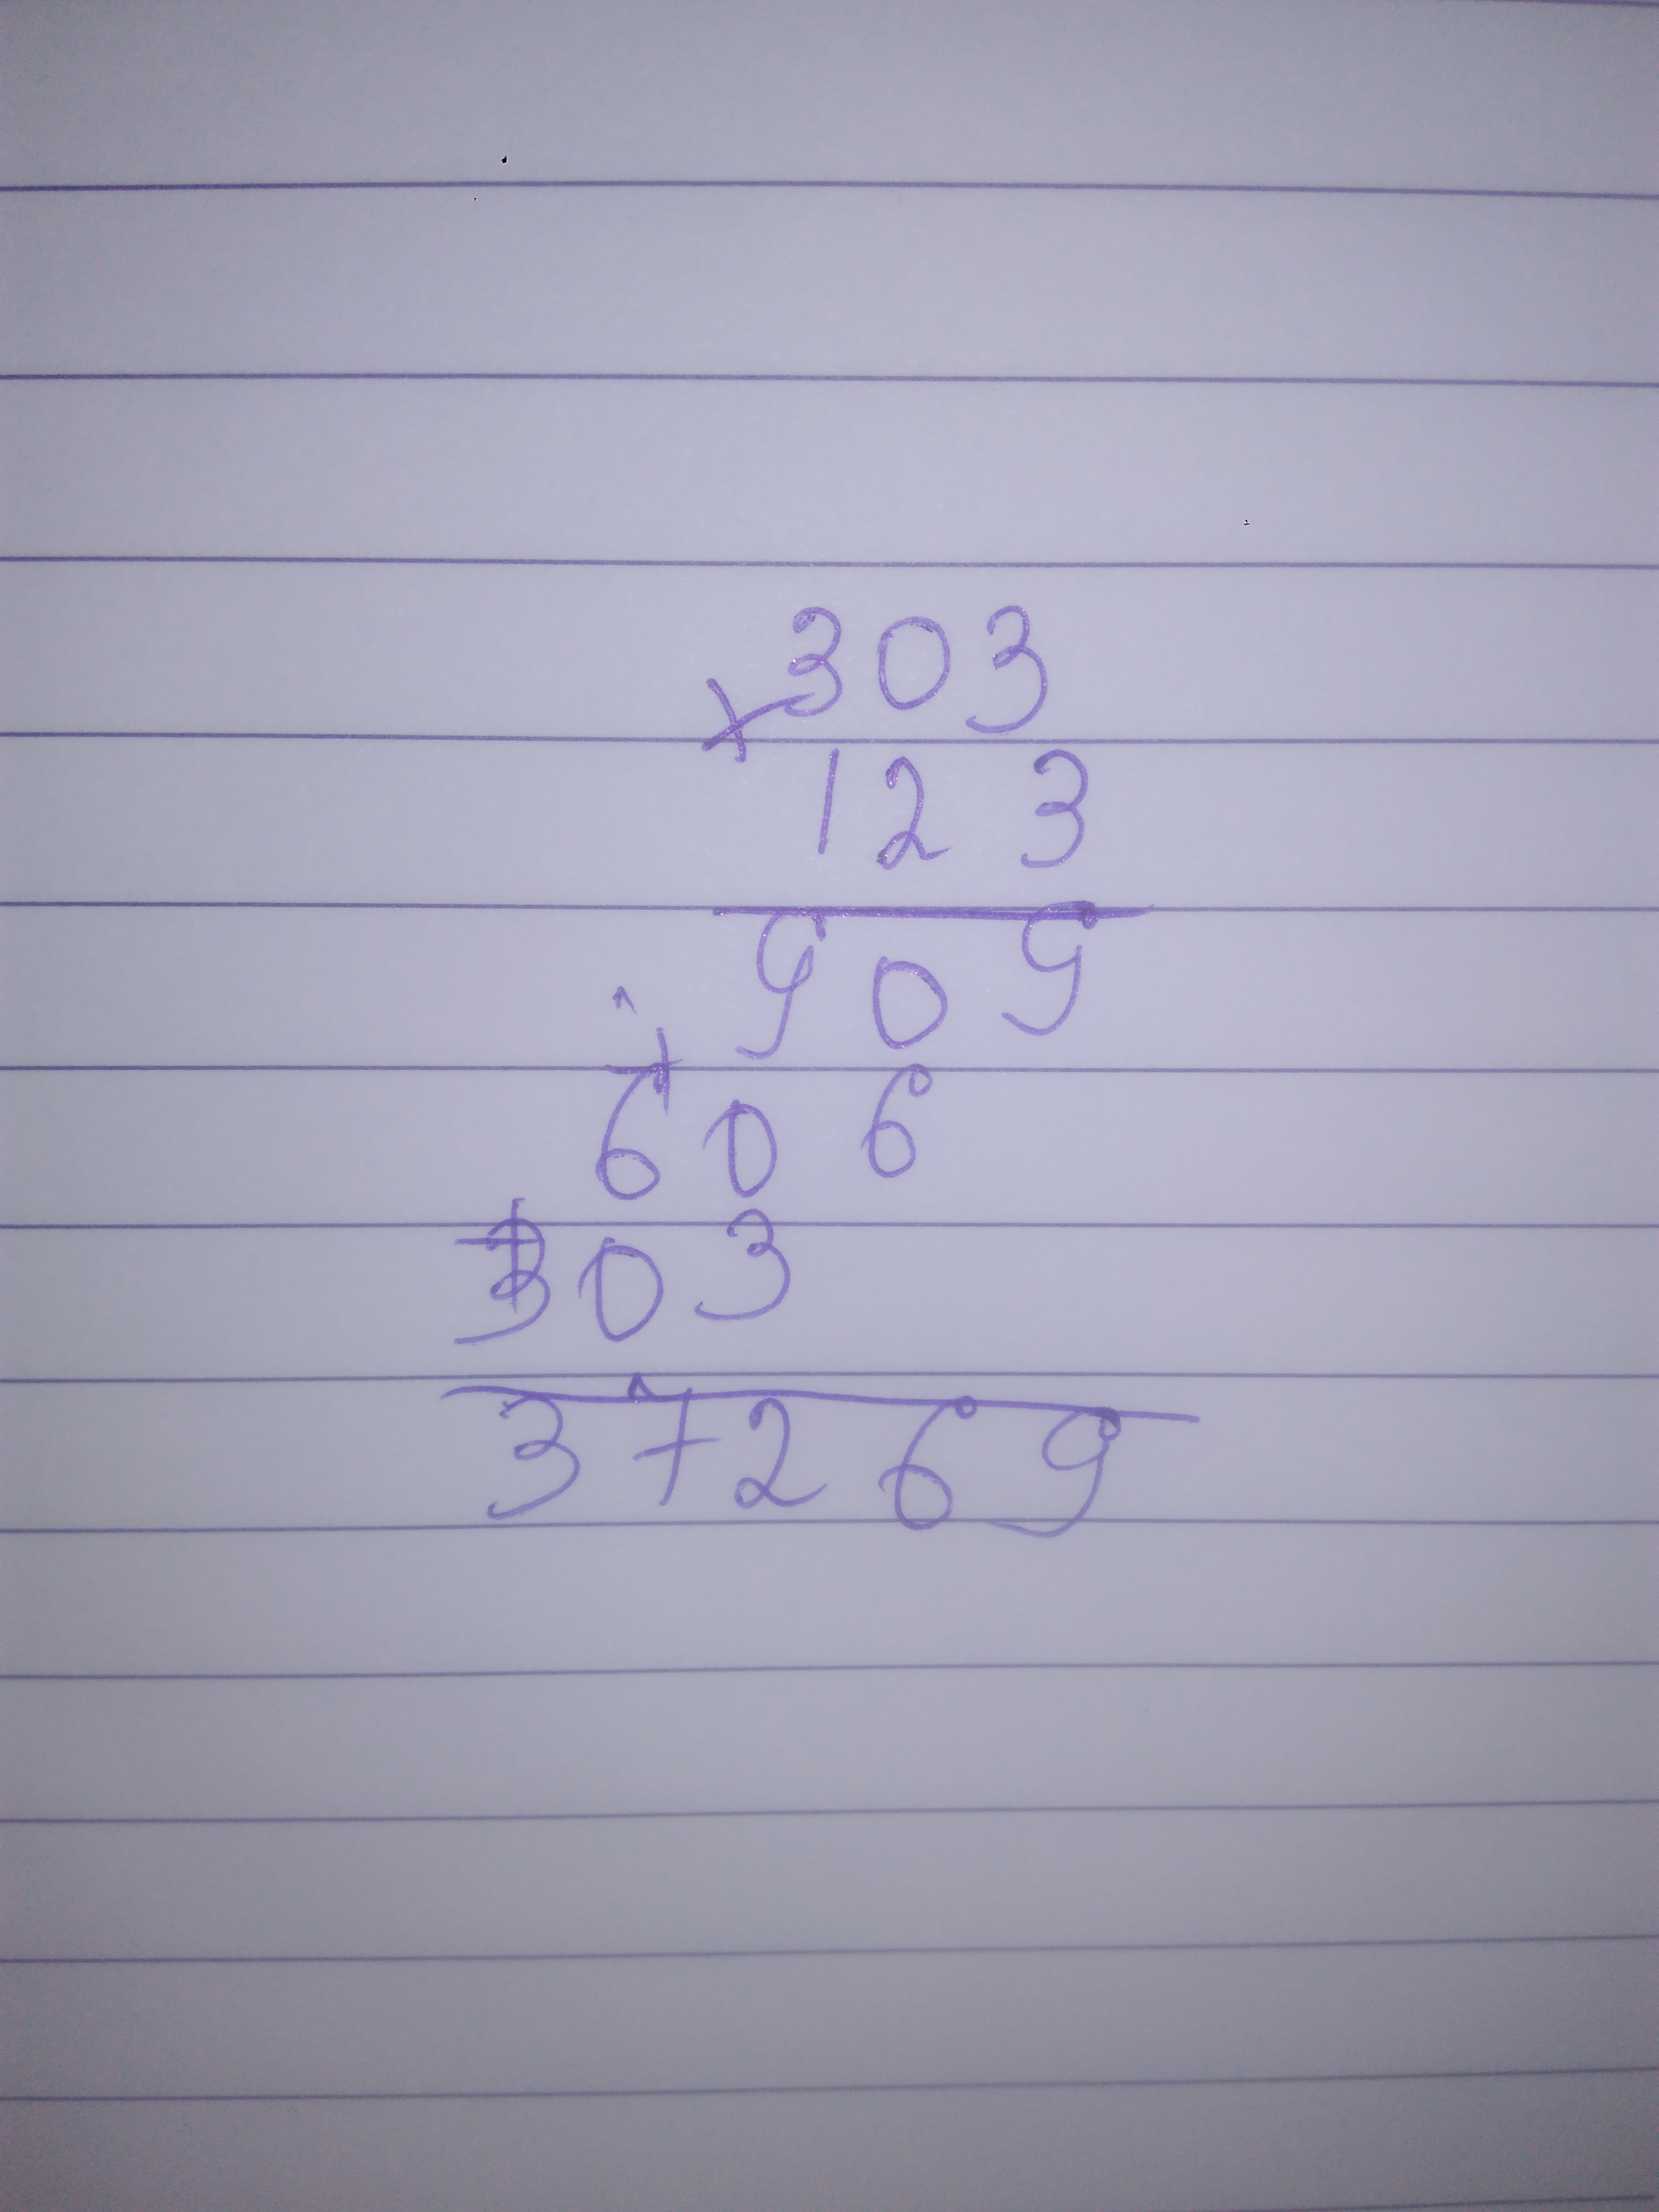 303
× 123
909
+ 606
+ 303
37269